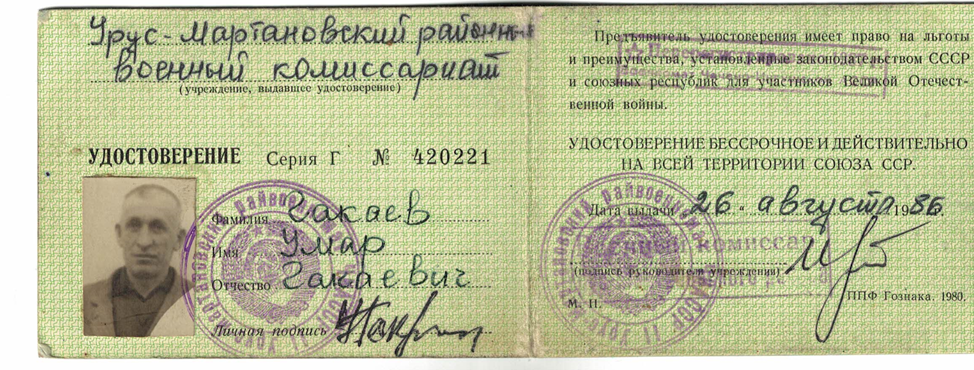 Урус-Мартановский районный
военный комиссариат
(учреждение, выдавшее удостоверение)
УДОСТОВЕРЕНИЕ Серия Г № 420221
Фамилия Гакаев
Имя Умар
Отчество Гакаевич
Личная подпись
Предъявитель удостоверения имеет право на льготы
и преимущества, установленные законодательством СССР
и союзных республик для участников Великой Отечест-
венной войны.
УДОСТОВЕРЕНИЕ БЕССРОЧНОЕ И ДЕЙСТВИТЕЛЬНО
НА ВСЕЙ ТЕРРИТОРИИ СОЮЗА ССР.
Дата выдачи 26 августа 1986.
военный комиссар
(подпись руководителя учреждения)
М. П.
ППФ Гознака. 1980.